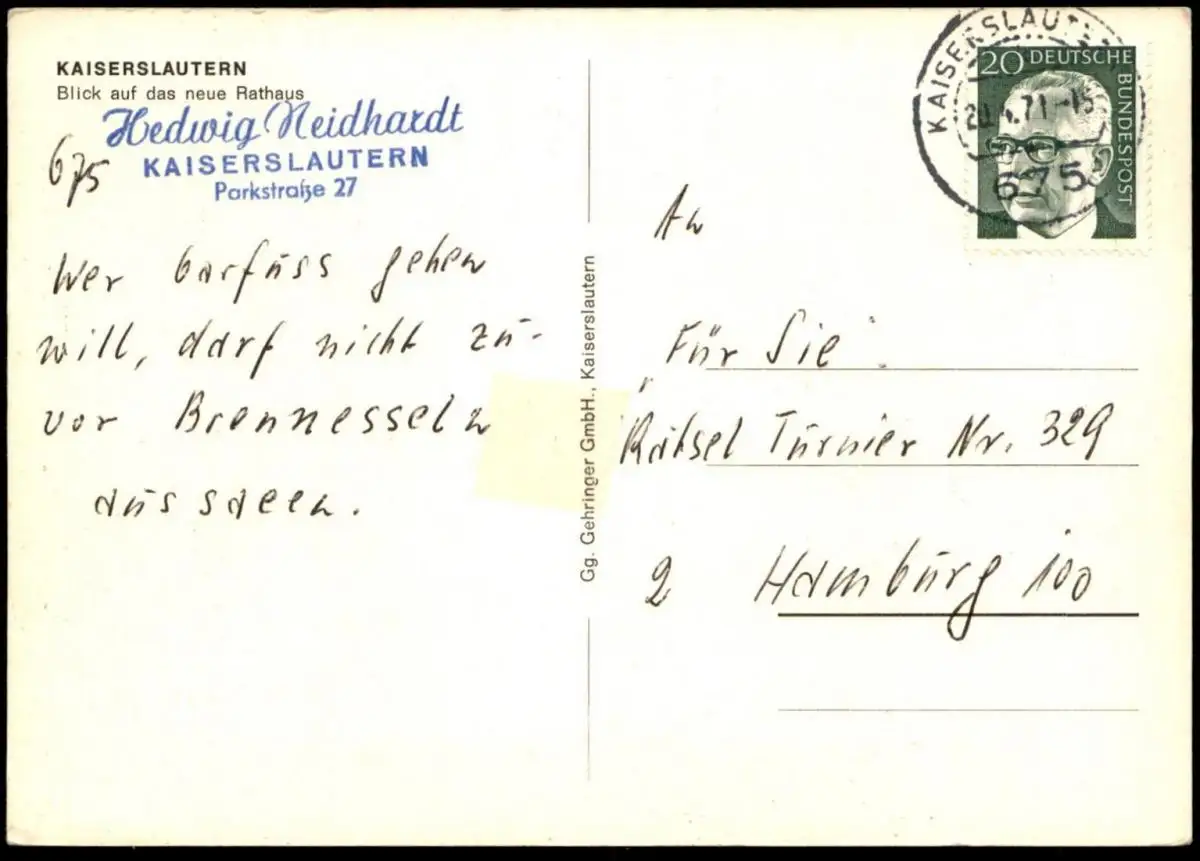 KAISERSLAUTERN
Blick auf das neue Rathaus
Hedwig Neidhardt
KAISERSLAUTERN
Parkstraße 27
675
Wer barfuss gehen
will, darf nicht zu-
vor Brennesseln
aussaeen.
Gg. Gehringer GmbH., Kaiserslautern
KAISERSLAUTERN
71-15
675
20 DEUTSCHE
BUNDESPOST
An
"Für Sie"
Rätsel Turnier Nr. 329
2 Hamburg 100